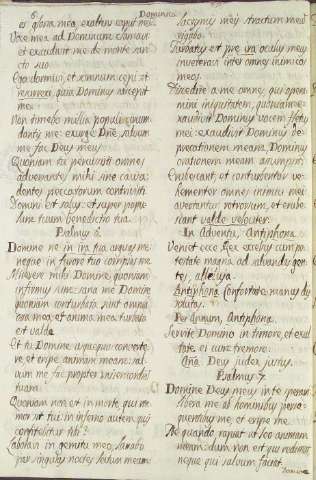 Dominica
es gloria mea, exaltans caput meũ
Voce mea ad Dominum clamavi
et exaudivit me de monte san-
cto suo
Ego dormivi, et somnum cepi et
resurrexi, quia Dominus suscepit
me.
Non timebo millia populi circun-
dantis me: exurge Dñe, salvum
me fac Deus meus.
Quoniam tu percussisti omnes
adversantes mihi sine causa:
dentes peccatorum contrivisti.
Domini est salus: et super popu-
lum tuum benedictio tua.
Psalmus 6.
Domine ne in ira tua arguas me
neque in furore tuo corripias me
Miserere mihi Domine, quoniam
infirmus sum: sana me Domine
quoniam conturbata sunt omnia
ossa mea. et anima mea turbata
est valde
Et tu Domine usquequo converte-
re et eripe animam meam: sal-
vum me fac propter misericordiã
tuam.
Quoniam non est in morte qui me-
mor sit tui: in inferno autem quis
confitebitur tibi?
Laboravi in gemitu meo, lavabo
per singulas noctes lectum meum:
lacrymis meis stractum meũ
rigabo.
Turbatus est pre ira oculus meus
inveteravi inter omnes inimicos
meos.
Discedite a me omnes qui opera-
mini iniquitatem, quoniam ex-
audivit Dominus vocem fletus
mei: exaudivit Dominus de-
precationem meam, Dominus
orationem meam assumpsit.
Erubescant et conturbentur ve-
hementer omnes inimici mei
avertantur retrorsum, et erube-
scant valde velociter.
In Adventu, Antiphona.
Veniet ecce Rex excelsus cum po-
testate magna ad salvandas gen-
tes, alleluya.
Antiphona Confortate manus dis-
solutas.
Per Annum, Antiphona.
Servite Domino in timore, et exul-
tate ei cum tremore.
Aña Deus judex justus.
Psalmus 7.
Domine Deus meus in te speravi
salvum me ex omnibus perse-
quentibus me, et eripe me.
Ne quando rapiat ut leo animam
meam: dum non est qui redimat
neque qui salvum faciat.
Domine